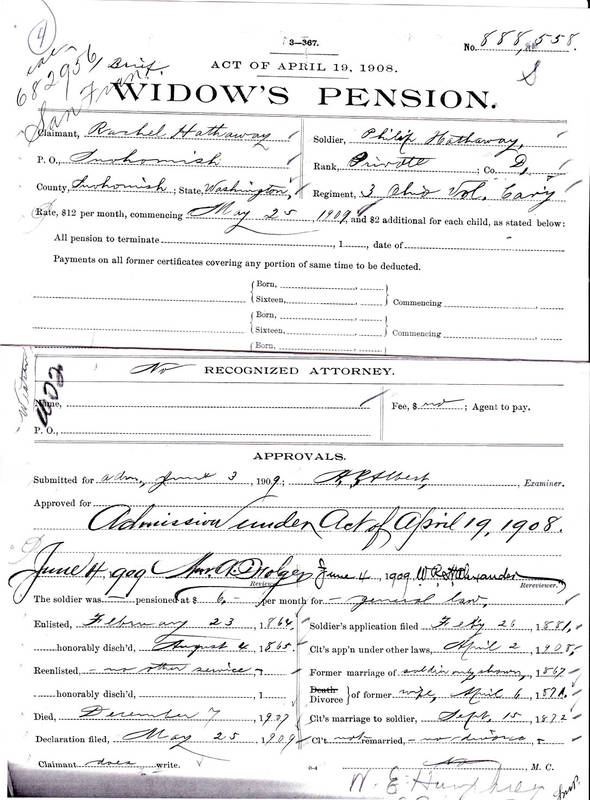 4
3—367.
No. 888,558.
682956
Brief.
San Fran.
S
ACT OF APRIL 19, 1908.
WIDOW'S PENSION.
Claimant, Rachel Hathaway
Soldier, Philip Hathaway,
P. O., Snohomish
Rank, Private ; Co. D,
County, Snohomish ; State, Washington,
Regiment, 3 Ohio Vol. Cav'y
Rate, $12 per month, commencing May 25 1909, and $2 additional for each child, as stated below:
All pension to terminate , 1 , date of
Payments on all former certificates covering any portion of same time to be deducted.
Born,
Sixteen, Commencing
Born,
Sixteen, Commencing
Born,
No RECOGNIZED ATTORNEY.
Name,
Fee, $ no ; Agent to pay.
P. O.,
APPROVALS.
Submitted for adm., June 3, 1909, Albert, Examiner.
Approved for
Admission under Act of April 19, 1908.
June 4, 909 June 4, 1909, Alexander
Reviewer. Rereviewer.
The soldier was — pensioned at $ 6. — per month for — general law,
Enlisted, February 23, 1864
Soldier's application filed Feby 26, 1881,
honorably disch'd, August 4, 1865
Clt's app'n under other laws, April 2, 1908,
Reenlisted, — no other service —
Former marriage of soldier only shown, 1867
honorably disch'd, , 1
Death Divorce } of former wife, April 6, 1871.
Died, December 7, 1907
Clt's marriage to soldier, Sept. 15, 1872
Declaration filed, May 25, 1909
Cl't not remarried, — no divorce
Claimant does write.
6-4
No M. C.
W. E. Humphrey